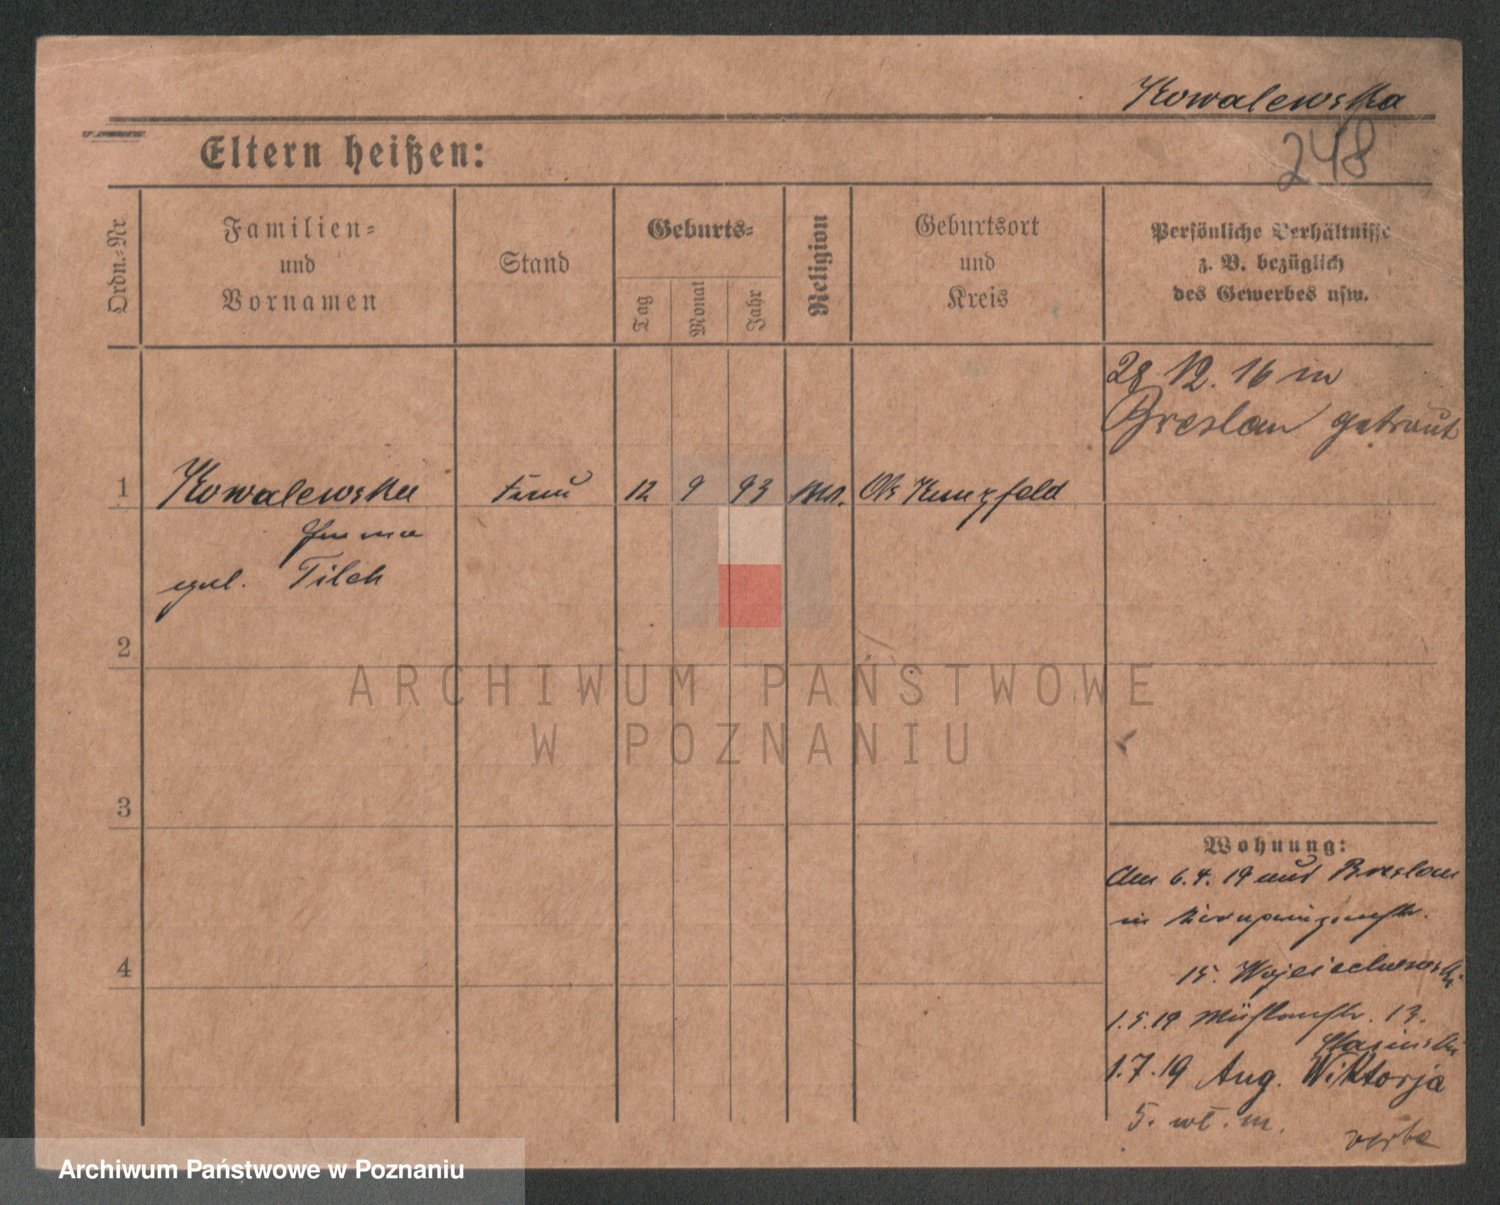 Kowalewska
248
Eltern heißen:
Ordn.-Nr
Familien-
und
Vornamen
Stand
Geburts-
Tag
Monat
Jahr
Religion
Geburtsort
und
Kreis
Persönliche Verhältnisse
z. B. bezüglich
des Gewerbes usw.
28 12. 16 in
Breslau getraut
1 Kowalewska Frau 12 9 93
Emma
geb. Tilch
2
3
4
Wohnung:
Am 6.4.19 aus Breslau
in
15. Wojciechowski
1.5.19 13.
1.7.19 Aug. Wiktorja
5. wł. m.
ARCHIWUM PAŃSTWOWE
W POZNANIU
Archiwum Państwowe w Poznaniu